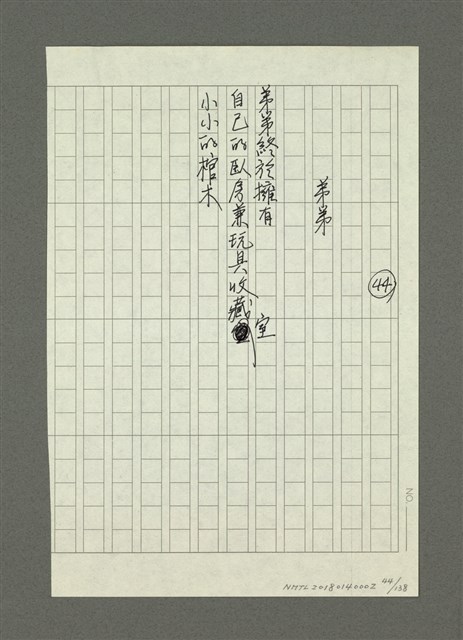 44
弟弟
弟弟終於擁有
自己的臥房兼玩具收藏室
小小的棺木
NO.
NMTL20180140002 44/138